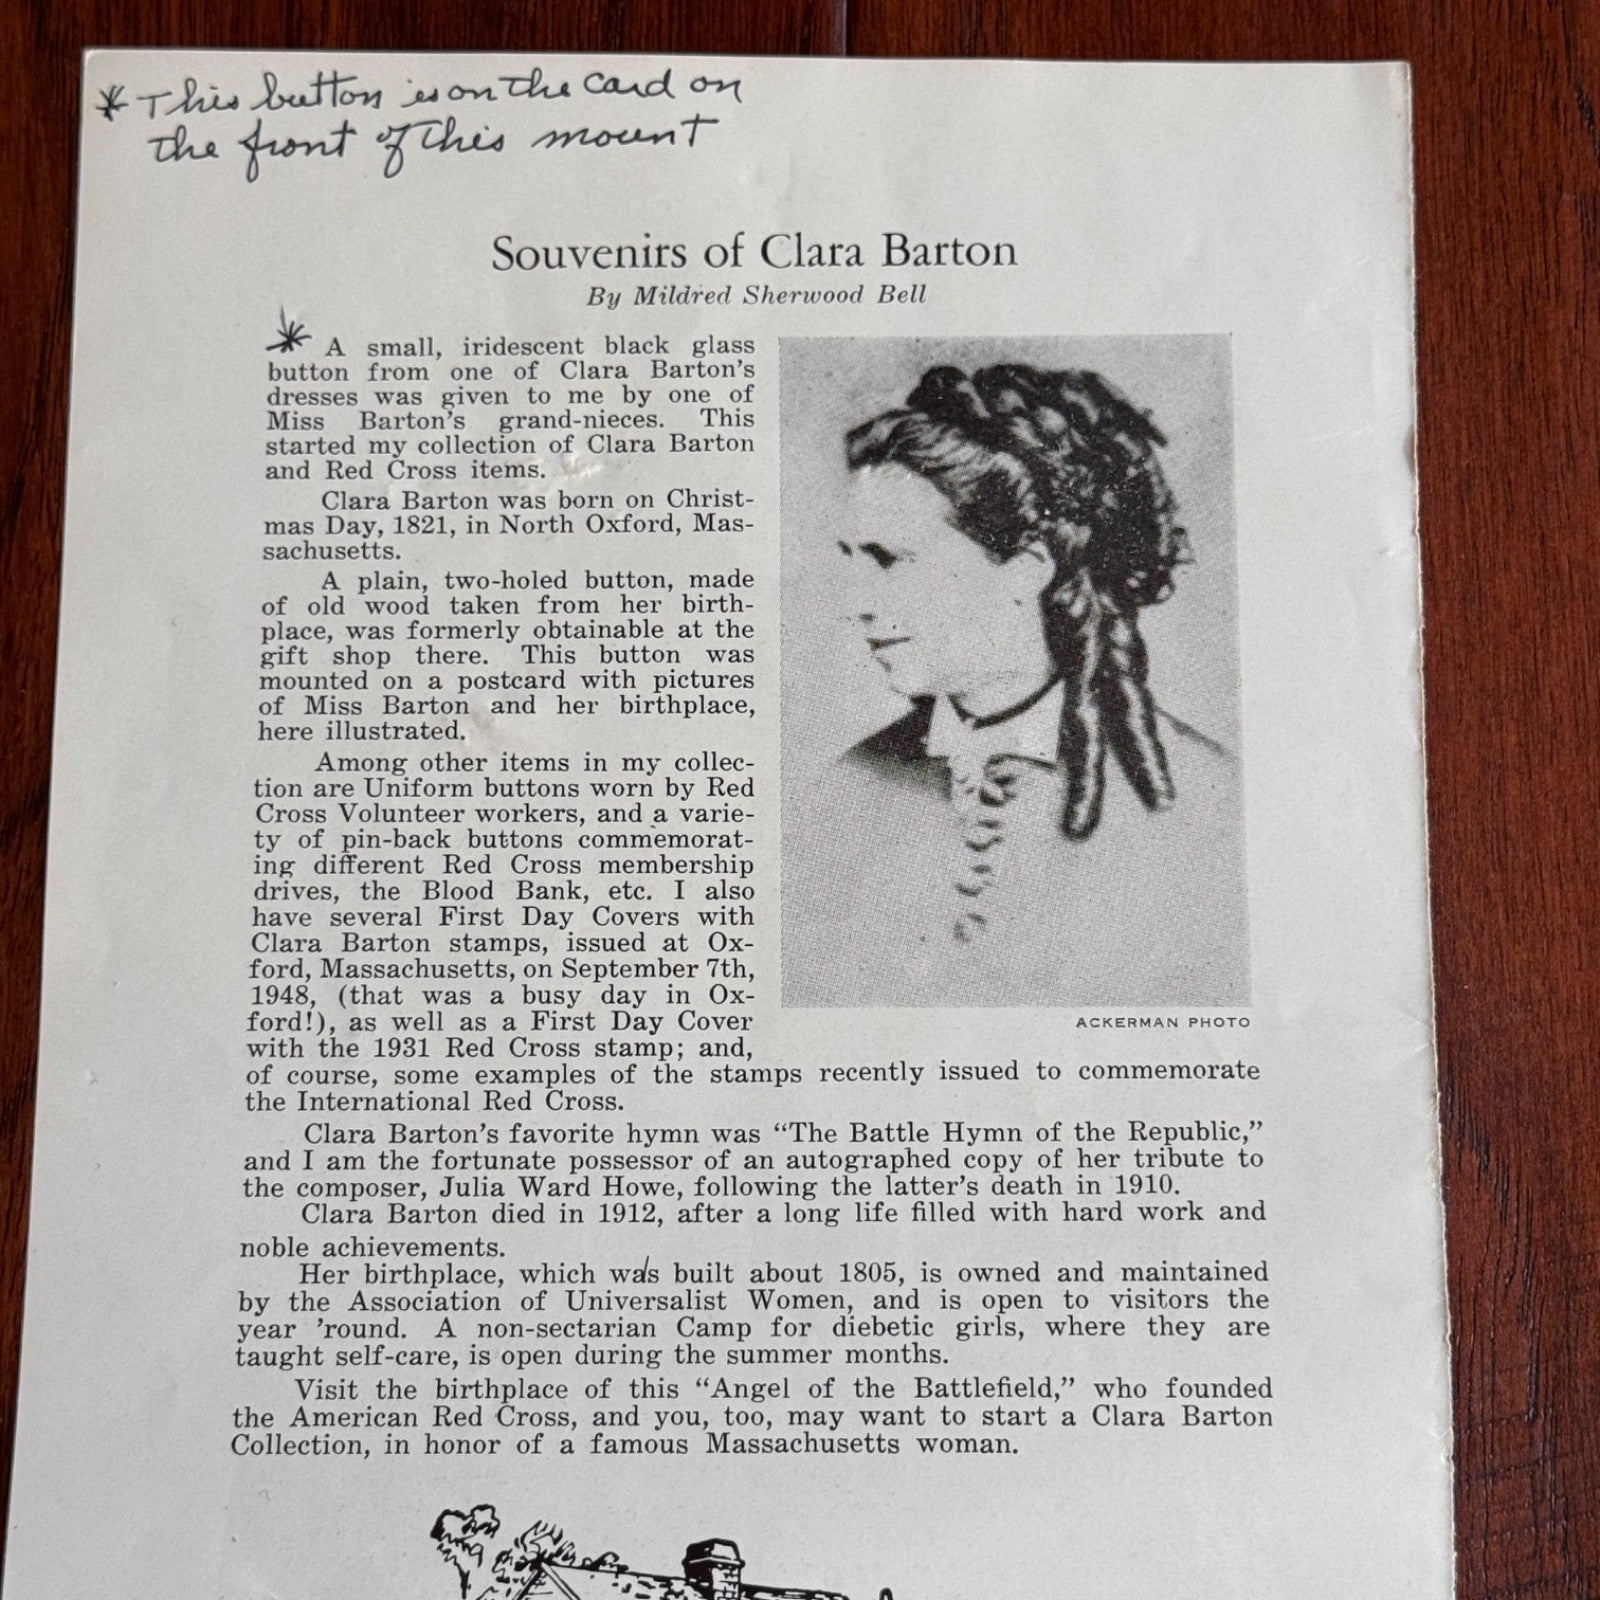 * This button is on the card on
the front of this mount
Souvenirs of Clara Barton
By Mildred Sherwood Bell
* A small, iridescent black glass
button from one of Clara Barton's
dresses was given to me by one of
Miss Barton's grand-nieces. This
started my collection of Clara Barton
and Red Cross items.
Clara Barton was born on Christ-
mas Day, 1821, in North Oxford, Mas-
sachusetts.
A plain, two-holed button, made
of old wood taken from her birth-
place, was formerly obtainable at the
gift shop there. This button was
mounted on a postcard with pictures
of Miss Barton and her birthplace,
here illustrated.
Among other items in my collec-
tion are Uniform buttons worn by Red
Cross Volunteer workers, and a varie-
ty of pin-back buttons commemorat-
ing different Red Cross membership
drives, the Blood Bank, etc. I also
have several First Day Covers with
Clara Barton stamps, issued at Ox-
ford, Massachusetts, on September 7th,
1948, (that was a busy day in Ox-
ford!), as well as a First Day Cover
with the 1931 Red Cross stamp; and,
of course, some examples of the stamps recently issued to commemorate
the International Red Cross.
ACKERMAN PHOTO
Clara Barton's favorite hymn was "The Battle Hymn of the Republic,"
and I am the fortunate possessor of an autographed copy of her tribute to
the composer, Julia Ward Howe, following the latter's death in 1910.
Clara Barton died in 1912, after a long life filled with hard work and
noble achievements.
Her birthplace, which was built about 1805, is owned and maintained
by the Association of Universalist Women, and is open to visitors the
year 'round. A non-sectarian Camp for diebetic girls, where they are
taught self-care, is open during the summer months.
Visit the birthplace of this "Angel of the Battlefield," who founded
the American Red Cross, and you, too, may want to start a Clara Barton
Collection, in honor of a famous Massachusetts woman.